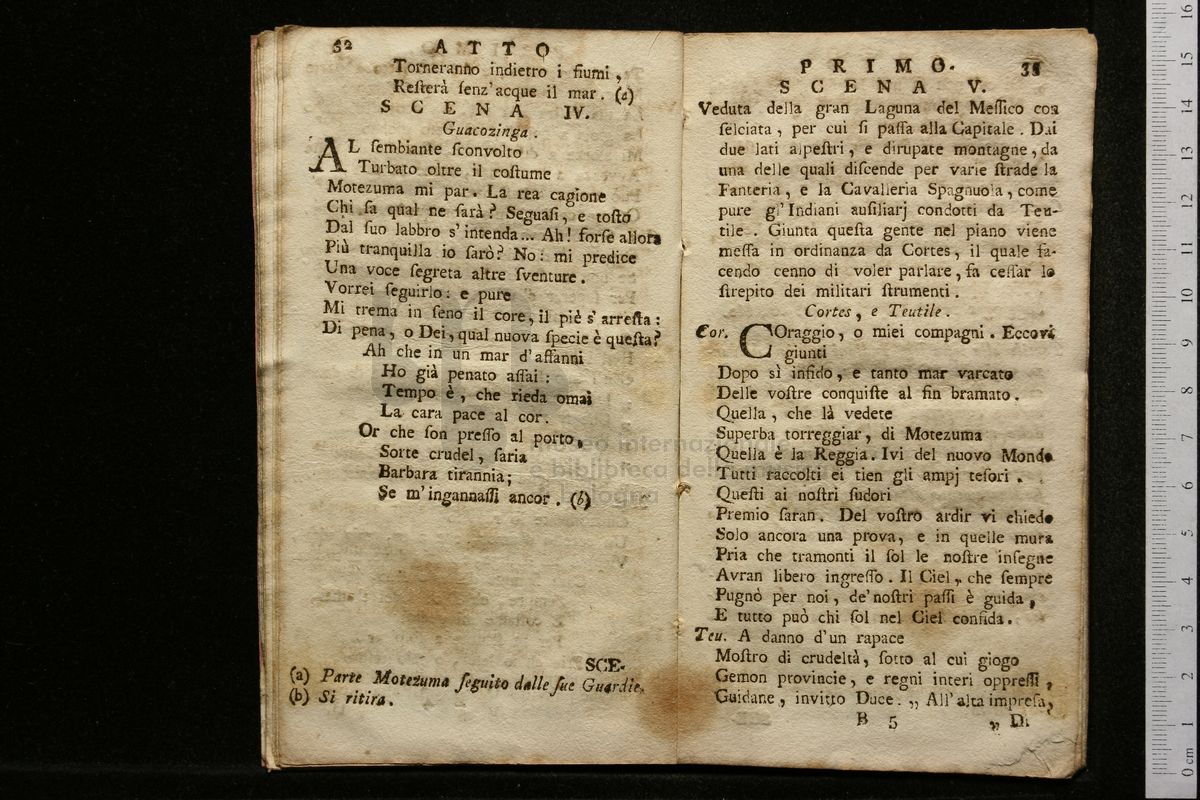 32 ATTO
Torneranno indietro i fiumi,
Resterà senz'acque il mar. (a)
SCENA IV.
Guacozinga.
AL sembiante sconvolto
Turbato oltre il costume
Motezuma mi par. La rea cagione
Chi sa qual ne sarà? Seguasi, e tosto
Dal suo labbro s'intenda... Ah! forse allora
Più tranquilla io sarò? No: mi predice
Una voce segreta altre sventure.
Vorrei seguirlo: e pure
Mi trema in seno il core, il piè s'arresta:
Di pena, o Dei, qual nuova specie è questa?
Ah che in un mar d'affanni
Ho già penato assai:
Tempo è, che rieda omai
La cara pace al cor.
Or che son presso al porto,
Sorte crudel, saria
Barbara tirannia;
Se m'ingannassi ancor. (b)
SCE-
(a) Parte Motezuma seguito dalle sue Guardie.
(b) Si ritira.
PRIMO. 33
SCENA V.
Veduta della gran Laguna del Messico con
selciata, per cui si passa alla Capitale. Dai
due lati alpestri, e dirupate montagne, da
una delle quali discende per varie strade la
Fanteria, e la Cavalleria Spagnuola, come
pure gl'Indiani ausiliarj condotti da Teu-
tile. Giunta questa gente nel piano viene
messa in ordinanza da Cortes, il quale fa-
cendo cenno di voler parlare, fa cessar lo
strepito dei militari strumenti.
Cortes, e Teutile.
Cor. COraggio, o miei compagni. Eccovi
giunti
Dopo sì infido, e tanto mar varcato
Delle vostre conquiste al fin bramato.
Quella, che là vedete
Superba torreggiar, di Motezuma
Quella è la Reggia. Ivi del nuovo Mondo
Tutti raccolti ei tien gli ampj tesori.
Questi ai nostri sudori
Premio saran. Del vostro ardir vi chiedo
Solo ancora una prova, e in quelle mura
Pria che tramonti il sol le nostre insegne
Avran libero ingresso. Il Ciel, che sempre
Pugnò per noi, de'nostri passi è guida,
E tutto può chi sol nel Ciel confida.
Teu. A danno d'un rapace
Mostro di crudeltà, sotto al cui giogo
Gemon provincie, e regni interi oppressi,
Guidane, invitto Duce. „ All'alta impresa,
B 5 „ Di